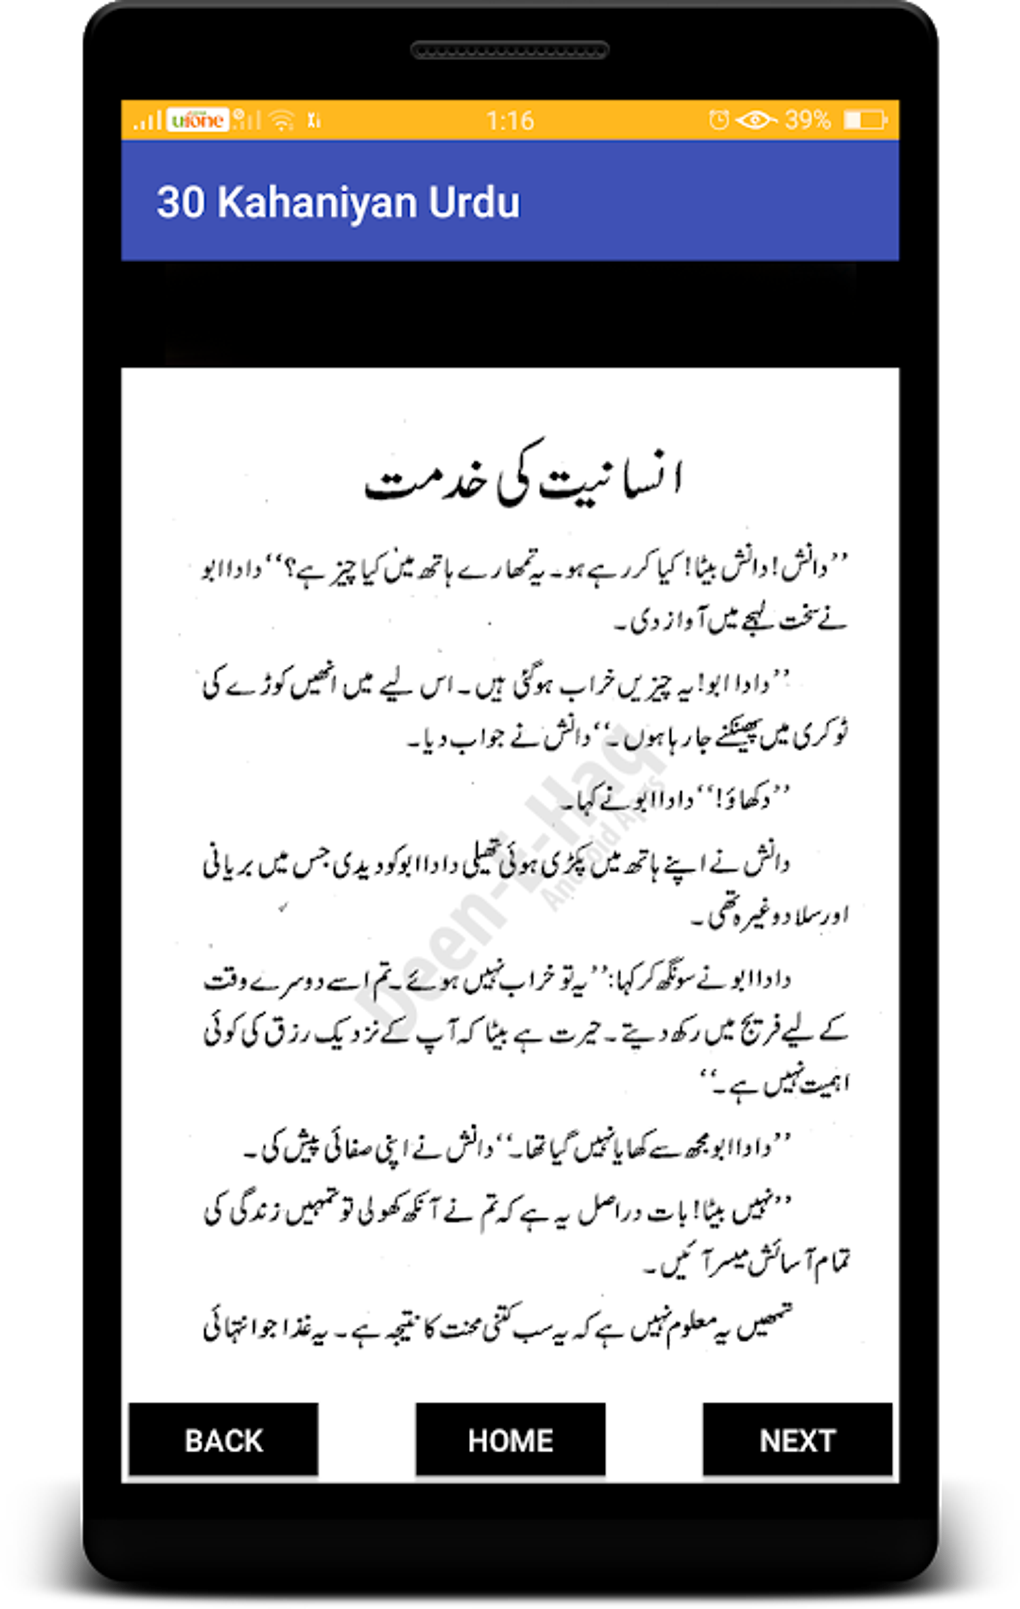 ufone
1:16
39%
30 Kahaniyan Urdu
انسانیت کی خدمت
’’دانش! دانش بیٹا! کیا کر رہے ہو۔ یہ تمھارے ہاتھ میں کیا چیز ہے؟‘‘ دادا ابو
نے سخت لہجے میں آواز دی۔
’’دادا ابو! یہ چیزیں خراب ہوگئی ہیں۔ اس لیے میں انھیں کوڑے کی
ٹوکری میں پھینکنے جا رہا ہوں۔‘‘ دانش نے جواب دیا۔
’’دکھاؤ!‘‘ دادا ابو نے کہا۔
دانش نے اپنے ہاتھ میں پکڑی ہوئی تھیلی دادا ابو کو دیدی جس میں بریانی
اور سلاد وغیرہ تھی۔
دادا ابو نے سونگھ کر کہا: ’’یہ تو خراب نہیں ہوئے۔ تم اسے دوسرے وقت
کے لیے فریج میں رکھ دیتے۔ حیرت ہے بیٹا کہ آپ کے نزدیک رزق کی کوئی
اہمیت نہیں ہے۔‘‘
’’دادا ابو مجھ سے کھایا نہیں گیا تھا۔‘‘ دانش نے اپنی صفائی پیش کی۔
’’نہیں بیٹا! بات دراصل یہ ہے کہ تم نے آنکھ کھولی تو تمہیں زندگی کی
تمام آسائش میسر آئیں۔
تمھیں یہ معلوم نہیں ہے کہ یہ سب کتنی محنت کا نتیجہ ہے۔ یہ غذا جو انتہائی
Deen-E-Haq
Android Apps
BACK
HOME
NEXT